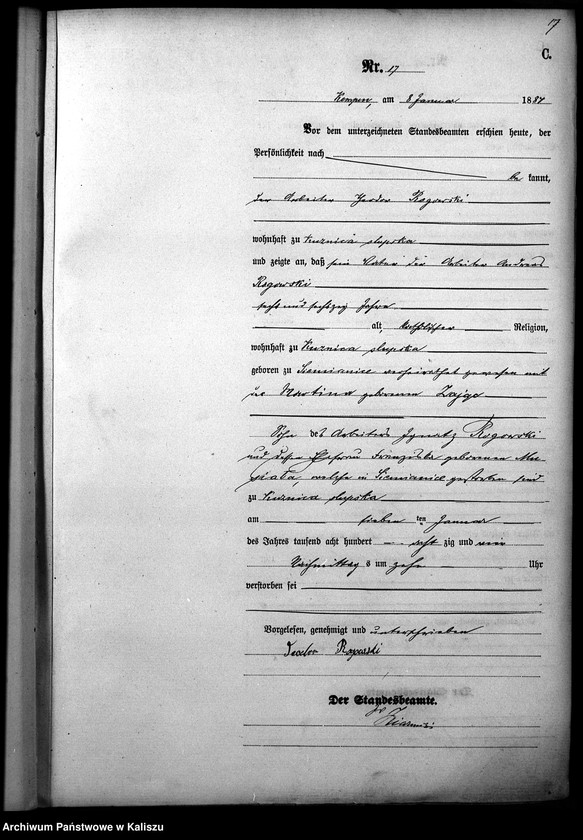 17
C.
Nr. 17
Kempen, am 8 Januar 1884
Vor dem unterzeichneten Standesbeamten erschien heute, der
Persönlichkeit nach
be kannt,
der Arbeiter Theodor Rogowski
wohnhaft zu Kuznica slupska
und zeigte an, daß sein Vater der Arbeiter Andreas
Rogowski
sechs und sechszig Jahre
alt, katholischer Religion,
wohnhaft zu Kuznica slupska
geboren zu Siemianice verheirathet gewesen mit
Martina geborenen Zajac
Sohn des Arbeiters Ignatz Rogowski
und dessen Ehefrau Franziska geborenen
welche in Siemianice gestorben sind
zu Kuznica slupska
am sieben ten Januar
des Jahres tausend acht hundert acht zig und vier
Nachmittag s um zehn Uhr
verstorben sei
Vorgelesen, genehmigt und unterschrieben
Teodor Rogowski
Der Standesbeamte.
Archiwum Państwowe w Kaliszu